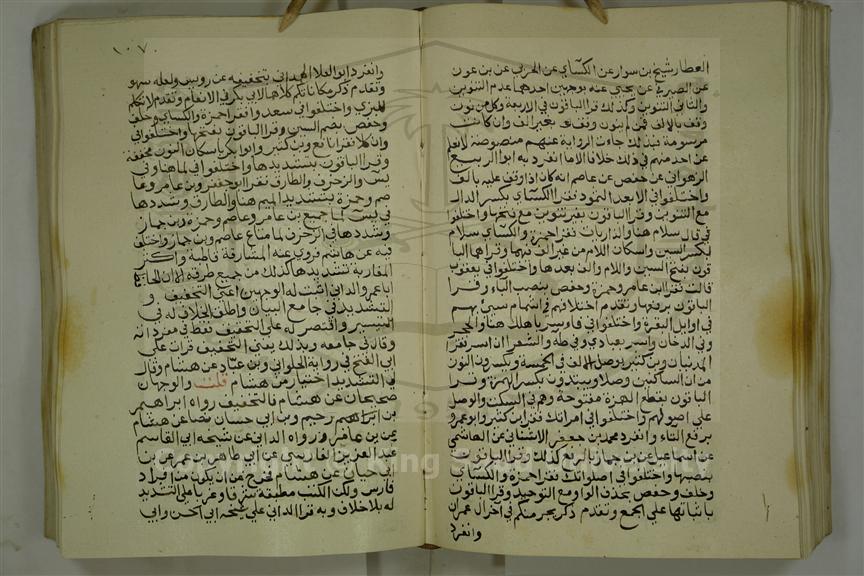 العطار شيخ بن سوار عن الكسآي عن الحربي عن بن عون
عن الصريفى عن يحيى عنه بوجهين احدهما عدم التنوين
والثانى التنوين وكذلك قرا الباقون في الاربعة وكل من نون
وقف بالالف ومن لم ينون وقف بغير الف وان كانت
مرسومة فبذلك جاءت الرواية عنهم منصوصة لانعلم
عن احد منهم في ذلك خلافا الا ما انفرد به ابو الربيع
الزهراني عن حفص عن عاصم انه كان اذا وقف عليه بالف
واختلفوا في الا بعد الثمود فقرا الكسآي بكسر الدال
مع التنوين وقرا الباقون بغير تنوين مع فتحها واختلفوا
في قال سلام هنا والذاريات فقرا حمزة والكسآي سلام
بكسر السين واسكان اللام من غير الف فيهما وقراهما البا
قون بفتح السين واللام والف بعدها واختلفوا في يعقوب
قالت فقرا ابن عامر وحمزة وحفص بنصب الباء وقرا
الباقون برفعها وتقدم اختلافهم في اشمام سىء بهم
في اوايل البقرة واختلفوا في فاسر باهلك هنا والحجر
وفي الدخان واسر بعبادي وفي طه والشعرا ان اسر فقرا
المدنيان وبن كثير بوصل الالف في الخمسة ويكسرون النون
من ان للساكنين وصلا ويبتدون بكسر الهمزة وقرا
الباقون بقطع الهمزة مفتوحة وهم في السكت والوصل
على اصولهم واختلفوا في امراتك فقرا بن كثير وابو عمرو
برفع التاء وانفرد محمد بن جعفر الاشناني عن الهاشمي
عن اسماعيل عن بن جماز بالرفع كذلك وقرا الباقون
بنصبها واختلفوا في اصلواتك فقرا حمزة والكسآي
وخلف وحفص بحذف الواو مع التوحيد وقرا الباقون
باثباتها على الجمع وتقدم ذكر يجرمنكم في اخر ال عمران
وانفرد
١٠٧
وانفرد ابو العلا الهمداني بتخفيفه عن رويس ولعله سهو
وتقدم ذكر مكاناتكم كلاهما لابي بكر في الانعام وتقدم لا تكلم
للبزي واختلفوا في سعدوا فقرا حمزة والكسآي وخلف
وحفص بضم السين وقرا الباقون بفتحها واختلفوا في
وان كلا فقرا نافع وبن كثير وابو بكر باسكان النون مخففة
وقرا الباقون بتشديدها واختلفوا في لما هنا وفي
يس والزخرف والطارق فقرا ابو جعفر وبن عامر وعا
صم وحمزة بتشديد الميم هنا والطارق وشددها
في يس لما جميع بن عامر وعاصم وحمزة وبن جماز
وشددها في الزخرف لما متاع عاصم وحمزة وبن جماز واختلف
فيه عن هشام فروى عنه المشارقة قاطبة واكثر
المغاربة تشديدها كذلك من جميع طرقه الا ان الحافظ
ابا عمرو الداني اثبت له الوجهين اعنى التخفيف و
التشديد في جامع البيان واطلق الخلاف له في
التيسير واقتصر له على التخفيف فقط في مفرداته
وقال في جامعه وبذلك يعنى التخفيف قرات على
ابي الفتح في رواية الحلواني وبن عباد عن هشام وقال
لي التشديد اختيار من هشام قلت والوجهان
صحيحان عن هشام فالتخفيف رواه ابراهيم
بن ابراهيم دحيم وبن ابي حسان نصا عن هشام
عن بن عامر ورواه الداني عن شيخه ابي القاسم
عبد العزيز الفارسي عن ابي طاهر بن عمر عن بن
ابي حسان عن هشام فخرج عن ان يكون من افراد
فارس ولكن الكتب مطبقة شرقا وغربا على التشديد
له بلا خلاف وبه قرا الداني على شيخه ابي الحسن وابي
Copyright © King Saud University